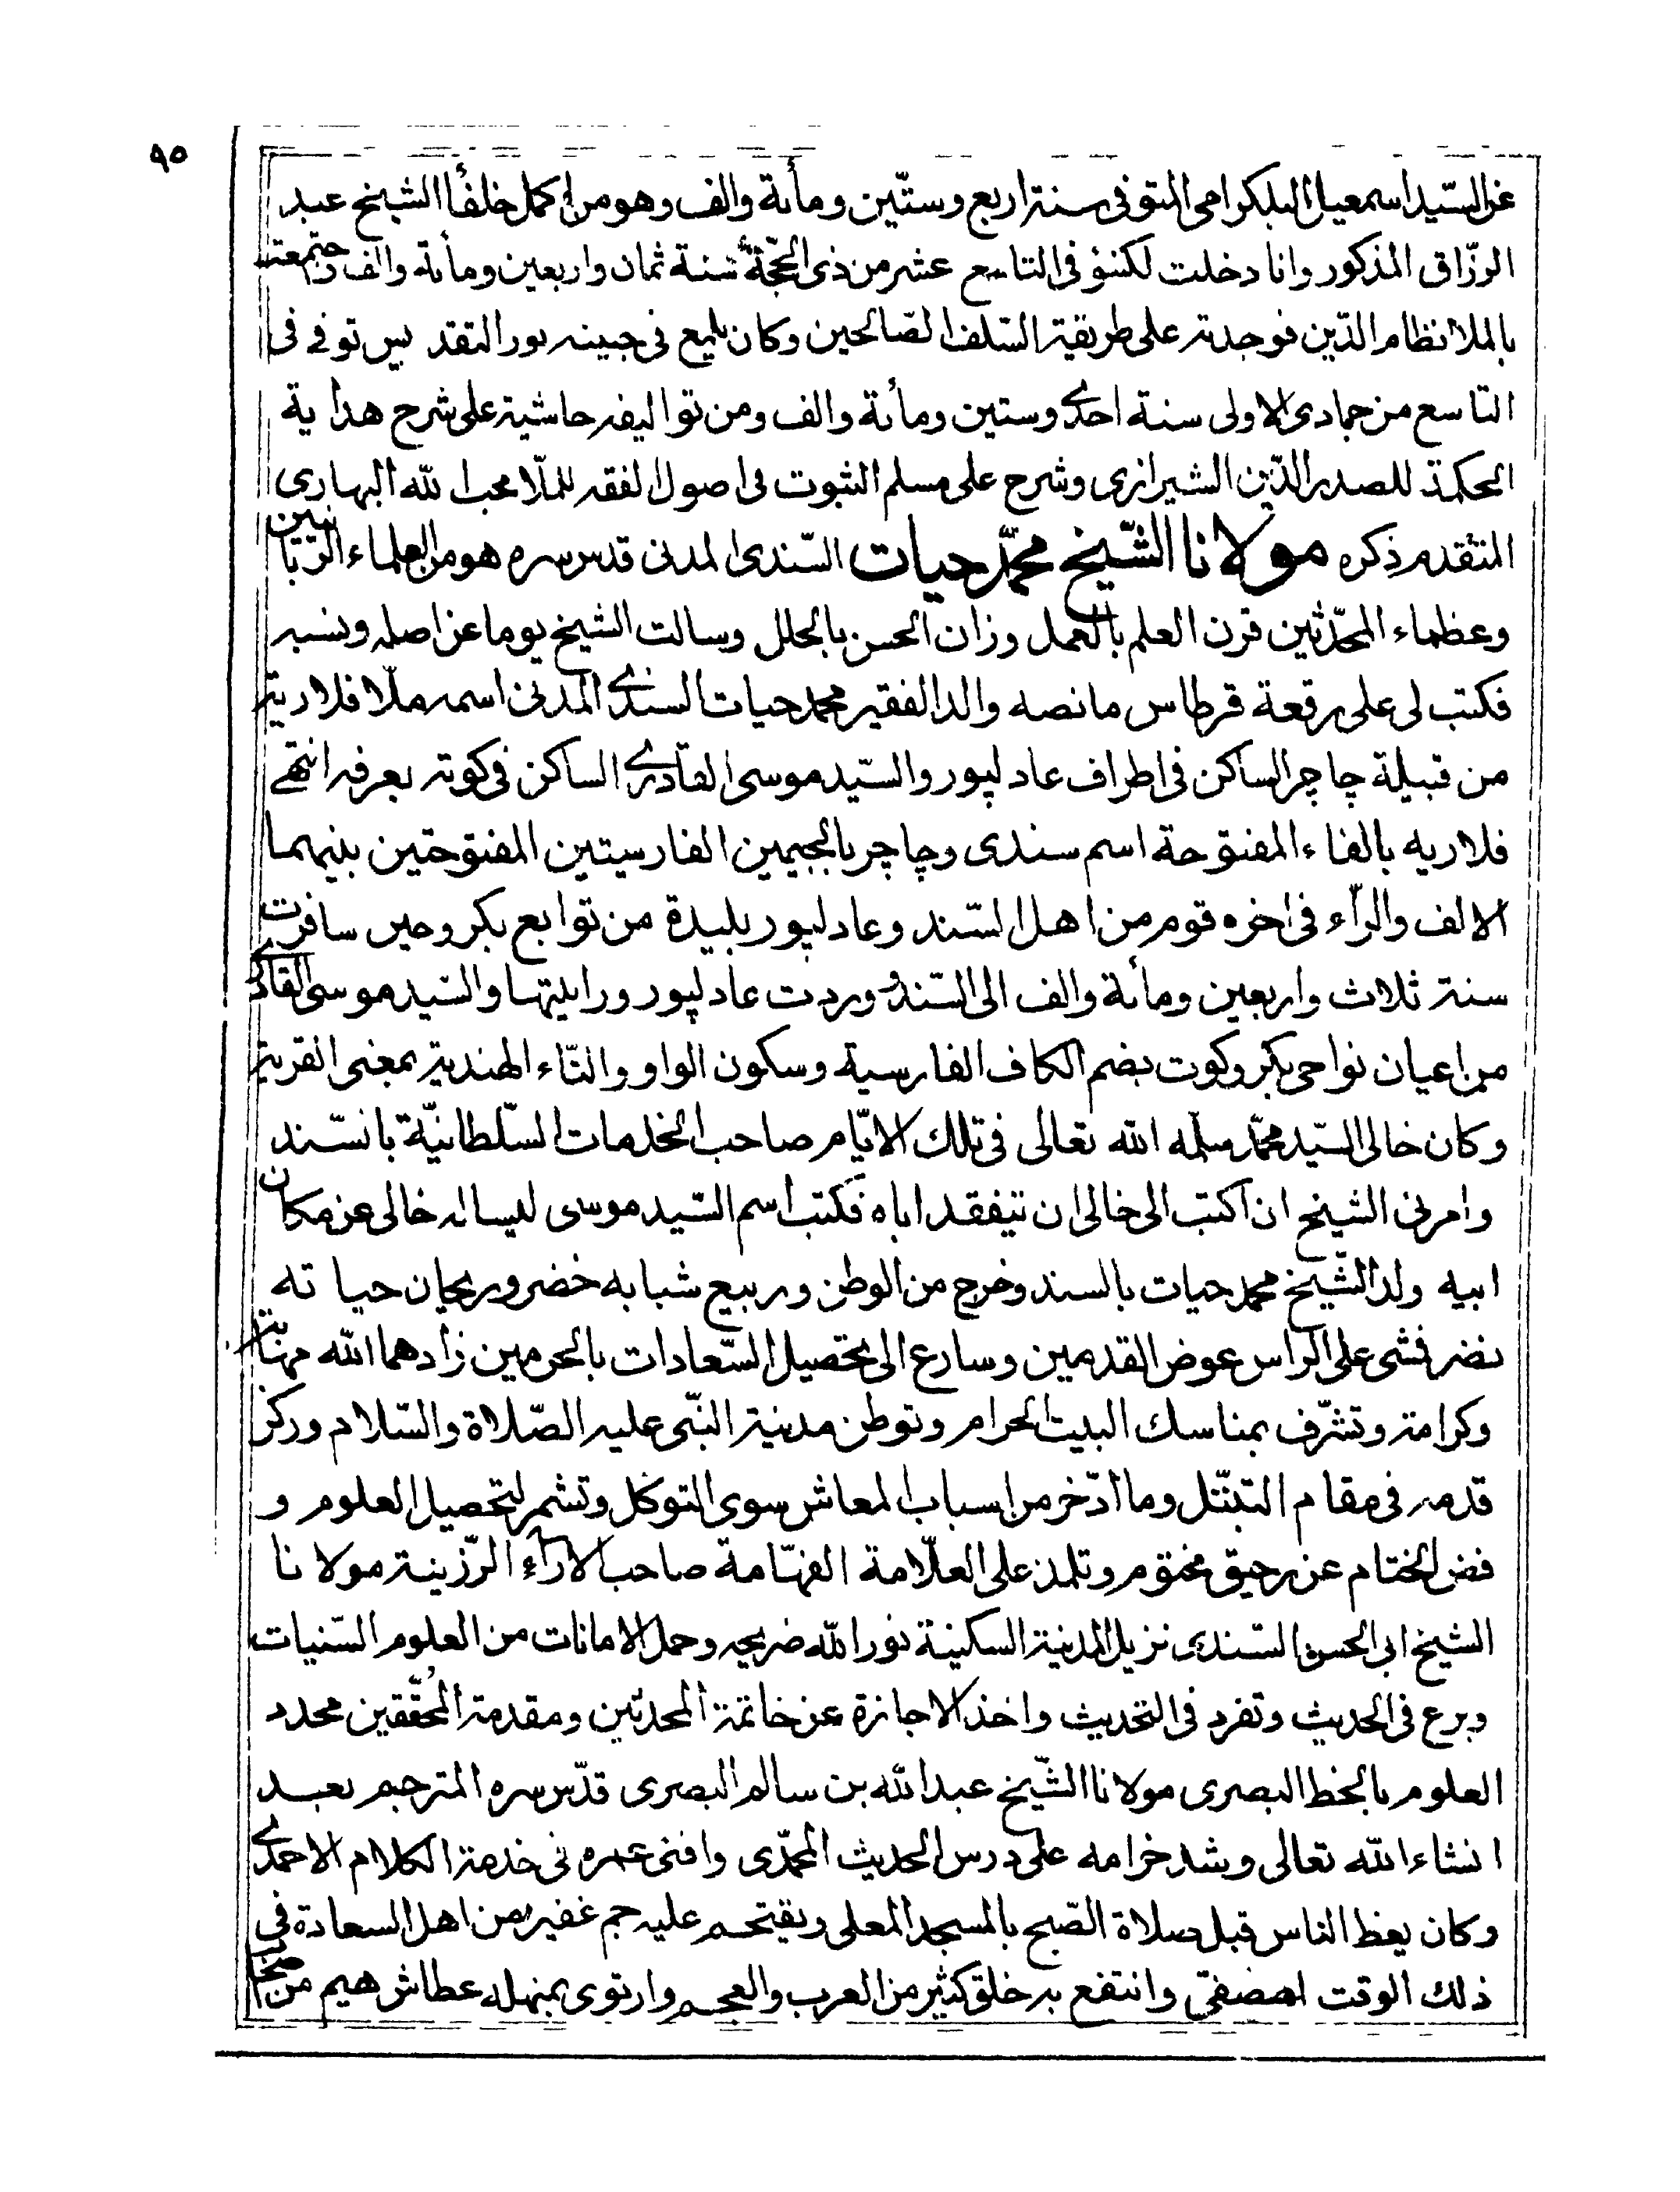 ٩٥
عن السّيد اسمعيل البلكرامى المتوفى سنة اربع وستّين ومأة والف وهو من اكمل خلفاً الشيخ عبد
الرزّاق المذكور وانا دخلت لكنؤ فى التاسع عشر من ذى الحجّة سنة ثمان واربعين ومأة والف واجتمعت
بالملا نظام الدّين فوجدته على طريقة السّلف الصّالحين وكان يلمع فى جبينه نور التقديس توفے فى
التاسع من جمادى الاولى سنة احدے وستين ومأة والف ومن تواليفه حاشية على شرح هداية
الحكمة للصدر الدّين الشيرازى وشرح على مسلم الثبوت فى اصول الفقه للملّا محب الله البهارى
المتقدم ذكره مولانا الشّيخ محمّد حيات السّندى المدنى قدس سره هو من العلماء الرّبانيين
وعظماء المحدّثين قرن العلم بالعمل وزان الحسن بالحلل وسالت الشيخ يوما عن اصله ونسبه
فكتب لى على رقعة قرطاس ما نصه والد الفقير محمد حيات السندے المدنى اسمه ملّا فلاريه
من قبيلة چاچر الساكن فى اطراف عادلپور والسّيد موسى القادرے الساكن فى كوته يعرفه انتهے
فلاريه بالفاء المفتوحة اسم سندى وچاچر بالجيمين الفارسيتين المفتوحتين بينهما
الالف والرّاء فى اخره قوم من اهل السّند وعادلپور بليدة من توابع بكر وحين سافرت
سنة ثلاث واربعين ومأة والف الى السّند وردت عادلپور ورايتها والسّيد موسى القادرے
من اعيان نواحى بكر وكوت بضم الكاف الفارسية وسكون الواو والتّاء الهندية بمعنى القرية
وكان خالى السّيد محمّد سلمه الله تعالى فى تلك الايّام صاحب الخدمات السّلطانيّة بالسّند
وامرنى الشيخ ان اكتب الى خالى ان يتفقد اباه فكتب اسم السّيد موسى ليساله خالى عن مكان
ابيه ولد الشّيخ محمد حيات بالسند وخرج من الوطن وربيع شبابه خضر وريحان حياته
نضر فمشى على الراس عوض القدمين وسارع الى تحصيل السّعادات بالحرمين زادهما الله مهابة
وكرامة وتشرّف بمناسك البيت الحرام وتوطن مدينة النّبى عليه الصّلاة والسّلام وركز
قدمه فى مقام التبتّل وما ادّخر من اسباب المعاش سوى التوكل وتشمر لتحصيل العلوم و
فض الختام عن رحيق مختوم وتلمذ على العلّامة الفهّامة صاحب الارآء الرّزينة مولانا
الشيخ ابى الحسن السّندى نزيل المدينة السكينة نور الله ضريحه وحمل الامانات من العلوم السّنيات
وبرع فى الحديث وتفرد فى التحديث واخذ الاجازة عن خاتمة المحدثين ومقدمة المُحقّقين محدد
العلوم بالخط البصرى مولانا الشّيخ عبد الله بن سالم البصرى قدّس سره المترجم بعيد
انشاء الله تعالى وشد خرامه على درس الحديث المحمّدى وافنى عمره فى خدمة الكلام الاحمدے
وكان يعظ الناس قبل صلاة الصّبح بالمسجد المعلى ويقتحم عليه جم غفير من اهل السعادة فى
ذلك الوقت وانتفع به خلق كثير من العرب والعجم وارتوى بمنهله عطاش هيم من